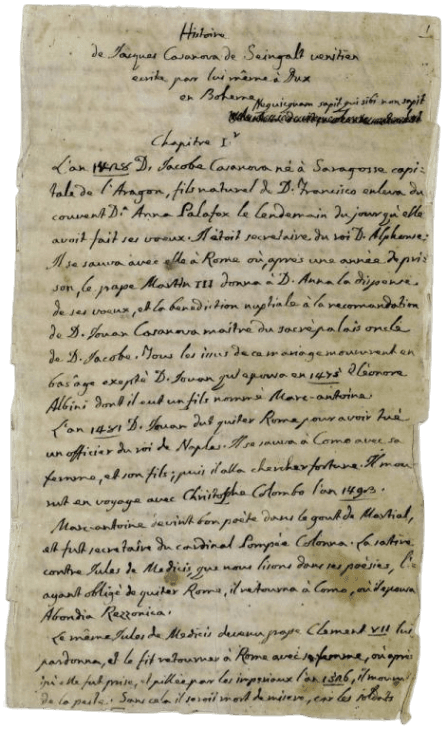 1
Histoire
de Jacques Casanova de Seingalt venitien
ecrite par lui même à Dux
en Boheme
Nequicquam sapit qui sibi non sapit
Chapitre Ir
L'an 1428 D. Jacobe Casanova né à Saragosse capi-
tale de l'Aragon, fils naturel de D. Francisco enleva du
couvent D. Anna Palafox le lendemain du jour qu'elle
avoit fait ses voeux. Il étoit secretaire du roi D. Alphonse.
Il se sauva avec elle à Rome où, après une année de pri-
son, le pape Martin III donna à D. Anna la dispense
de ses voeux, et la bénédiction nuptiale à la recomandation
de D. Jouan Casanova maitre du sacré palais oncle
de D. Jacobe. Tous les issus de ce mariage moururent en
bas âge exepté D. Jouan qui epousa en 1475 Eléonore
Albini dont il eut un fils nommé Marc-antoine.
L'an 1481 D. Jouan dut quiter Rome pour avoir tué
un officier du roi de Naples. Il se sauva à Como avec sa
femme, et son fils; puis il alla chercher fortune. Il mou-
rut en voyage avec Christophe Colombo l'an 1493.
Marc-antoine devint bon poète dans le gout de Martial,
et fut secretaire du cardinal Pompée Colonna. La satire
contre Jules de Medicis, que nous lisons dans ses poésies, l'
ayant obligé de quiter Rome, il retourna à Como, où il epousa
Abondia Rezzonica.
Le même Jules de Medicis devenu pape Clement VII lui
pardonna, et le fit retourner à Rome avec sa femme, où après
qu'elle fut prise, et pillée par les imperiaux l'an 1526, il mourut
de la peste. Sans cela il seroit mort de misere, car les soldats